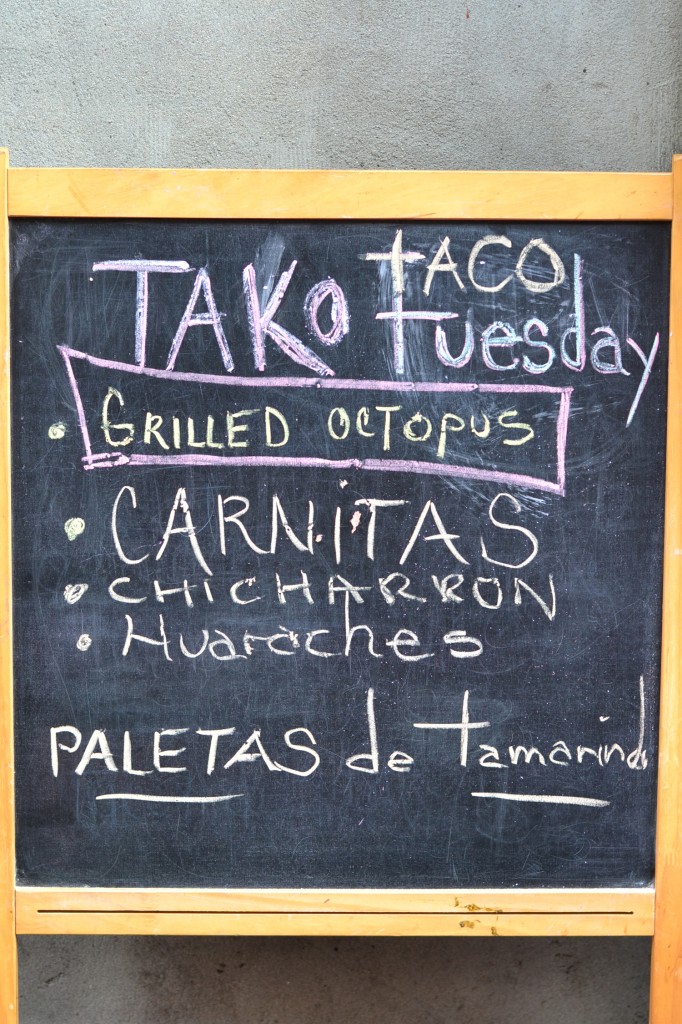 TAKO tACO
tuesday
• GRILLED OCTOPUS
• CARNiTAS
• CHICHARRON
• Huaraches
PALETAS de tamarindo